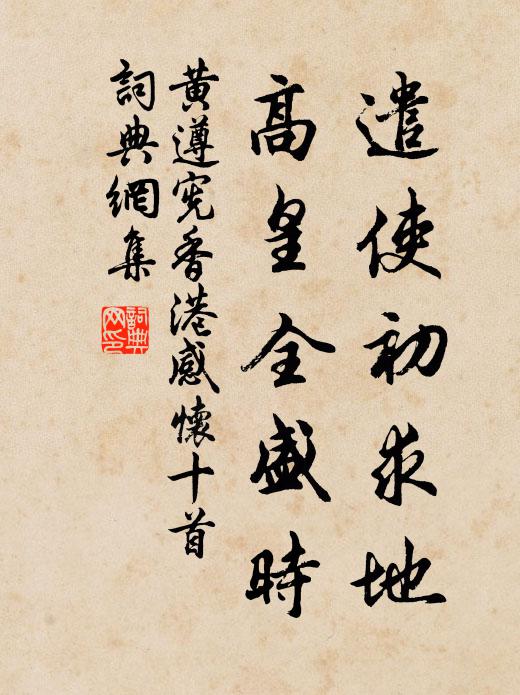 遣使初求地
高皇全盛時
黄遵宪香港感懷十首
詞典網集
詞典网印